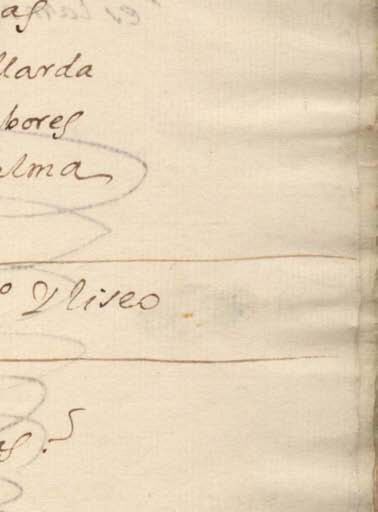 as
llarda
bores
elma
o Yliseo